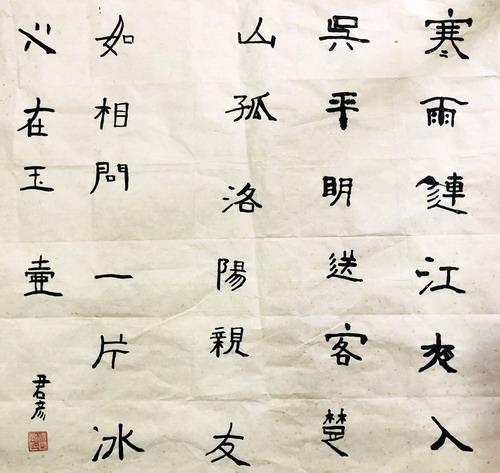 寒雨連江夜入
吳平明送客楚
山孤洛陽親友
如相問一片冰
心在玉壺
君彦